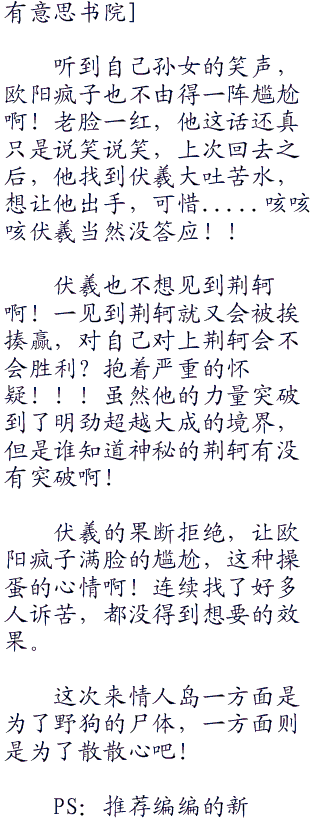 有意思书院]
听到自己孙女的笑声，
欧阳疯子也不由得一阵尴尬
啊！老脸一红，他这话还真
只是说笑说笑，上次回去之
后，他找到伏羲大吐苦水，
想让他出手，可惜.....咳咳
咳伏羲当然没答应！！
伏羲也不想见到荆轲
啊！一见到荆轲就又会被挨
揍赢，对自己对上荆轲会不
会胜利？抱着严重的怀
疑！！！虽然他的力量突破
到了明劲超越大成的境界，
但是谁知道神秘的荆轲有没
有突破啊！
伏羲的果断拒绝，让欧
阳疯子满脸的尴尬，这种操
蛋的心情啊！连续找了好多
人诉苦，都没得到想要的效
果。
这次来情人岛一方面是
为了野狗的尸体，一方面则
是为了散散心吧！
PS：推荐编编的新